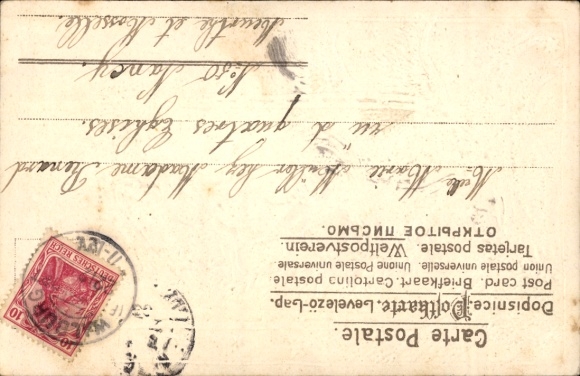 Carte Postale.
Dopisnice. Postkarte. Levelező-Lap.
Post card. Briefkaart. Cartolina postale.
Union postale universelle. Unione Postale universale.
Tarjetas postale. Weltpostverein.
ОТКРЫТОЕ ПИСЬМО.
DEUTSCHES REICH
10 10
Melle Marie Müller chez Madame Renard
rue d quatres Eghises.
No 50 Nancy.
Meurthe et Mosselle.